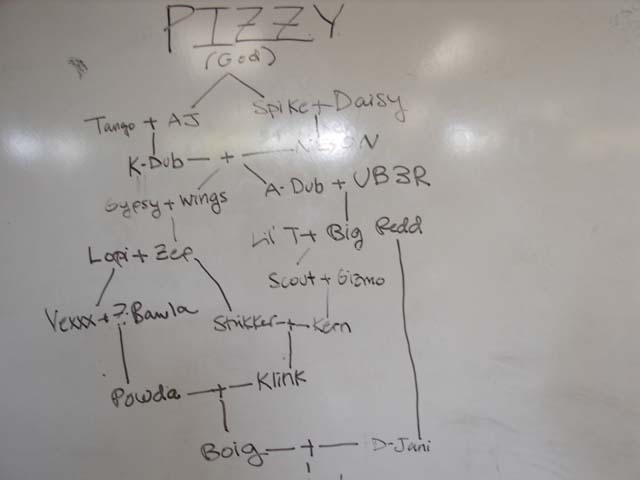 PIZZY
(God)
Tango + AJ
Spike + Daisy
K-Dub +
A-Dub + UB3R
Gypsy + Wings
Lil' T + Big Redd
Lopi + Zee
Scout + Gizmo
Vexxx + ?. Bawla
Strikker + Kern
Powda + Klink
Boig + D-Jani